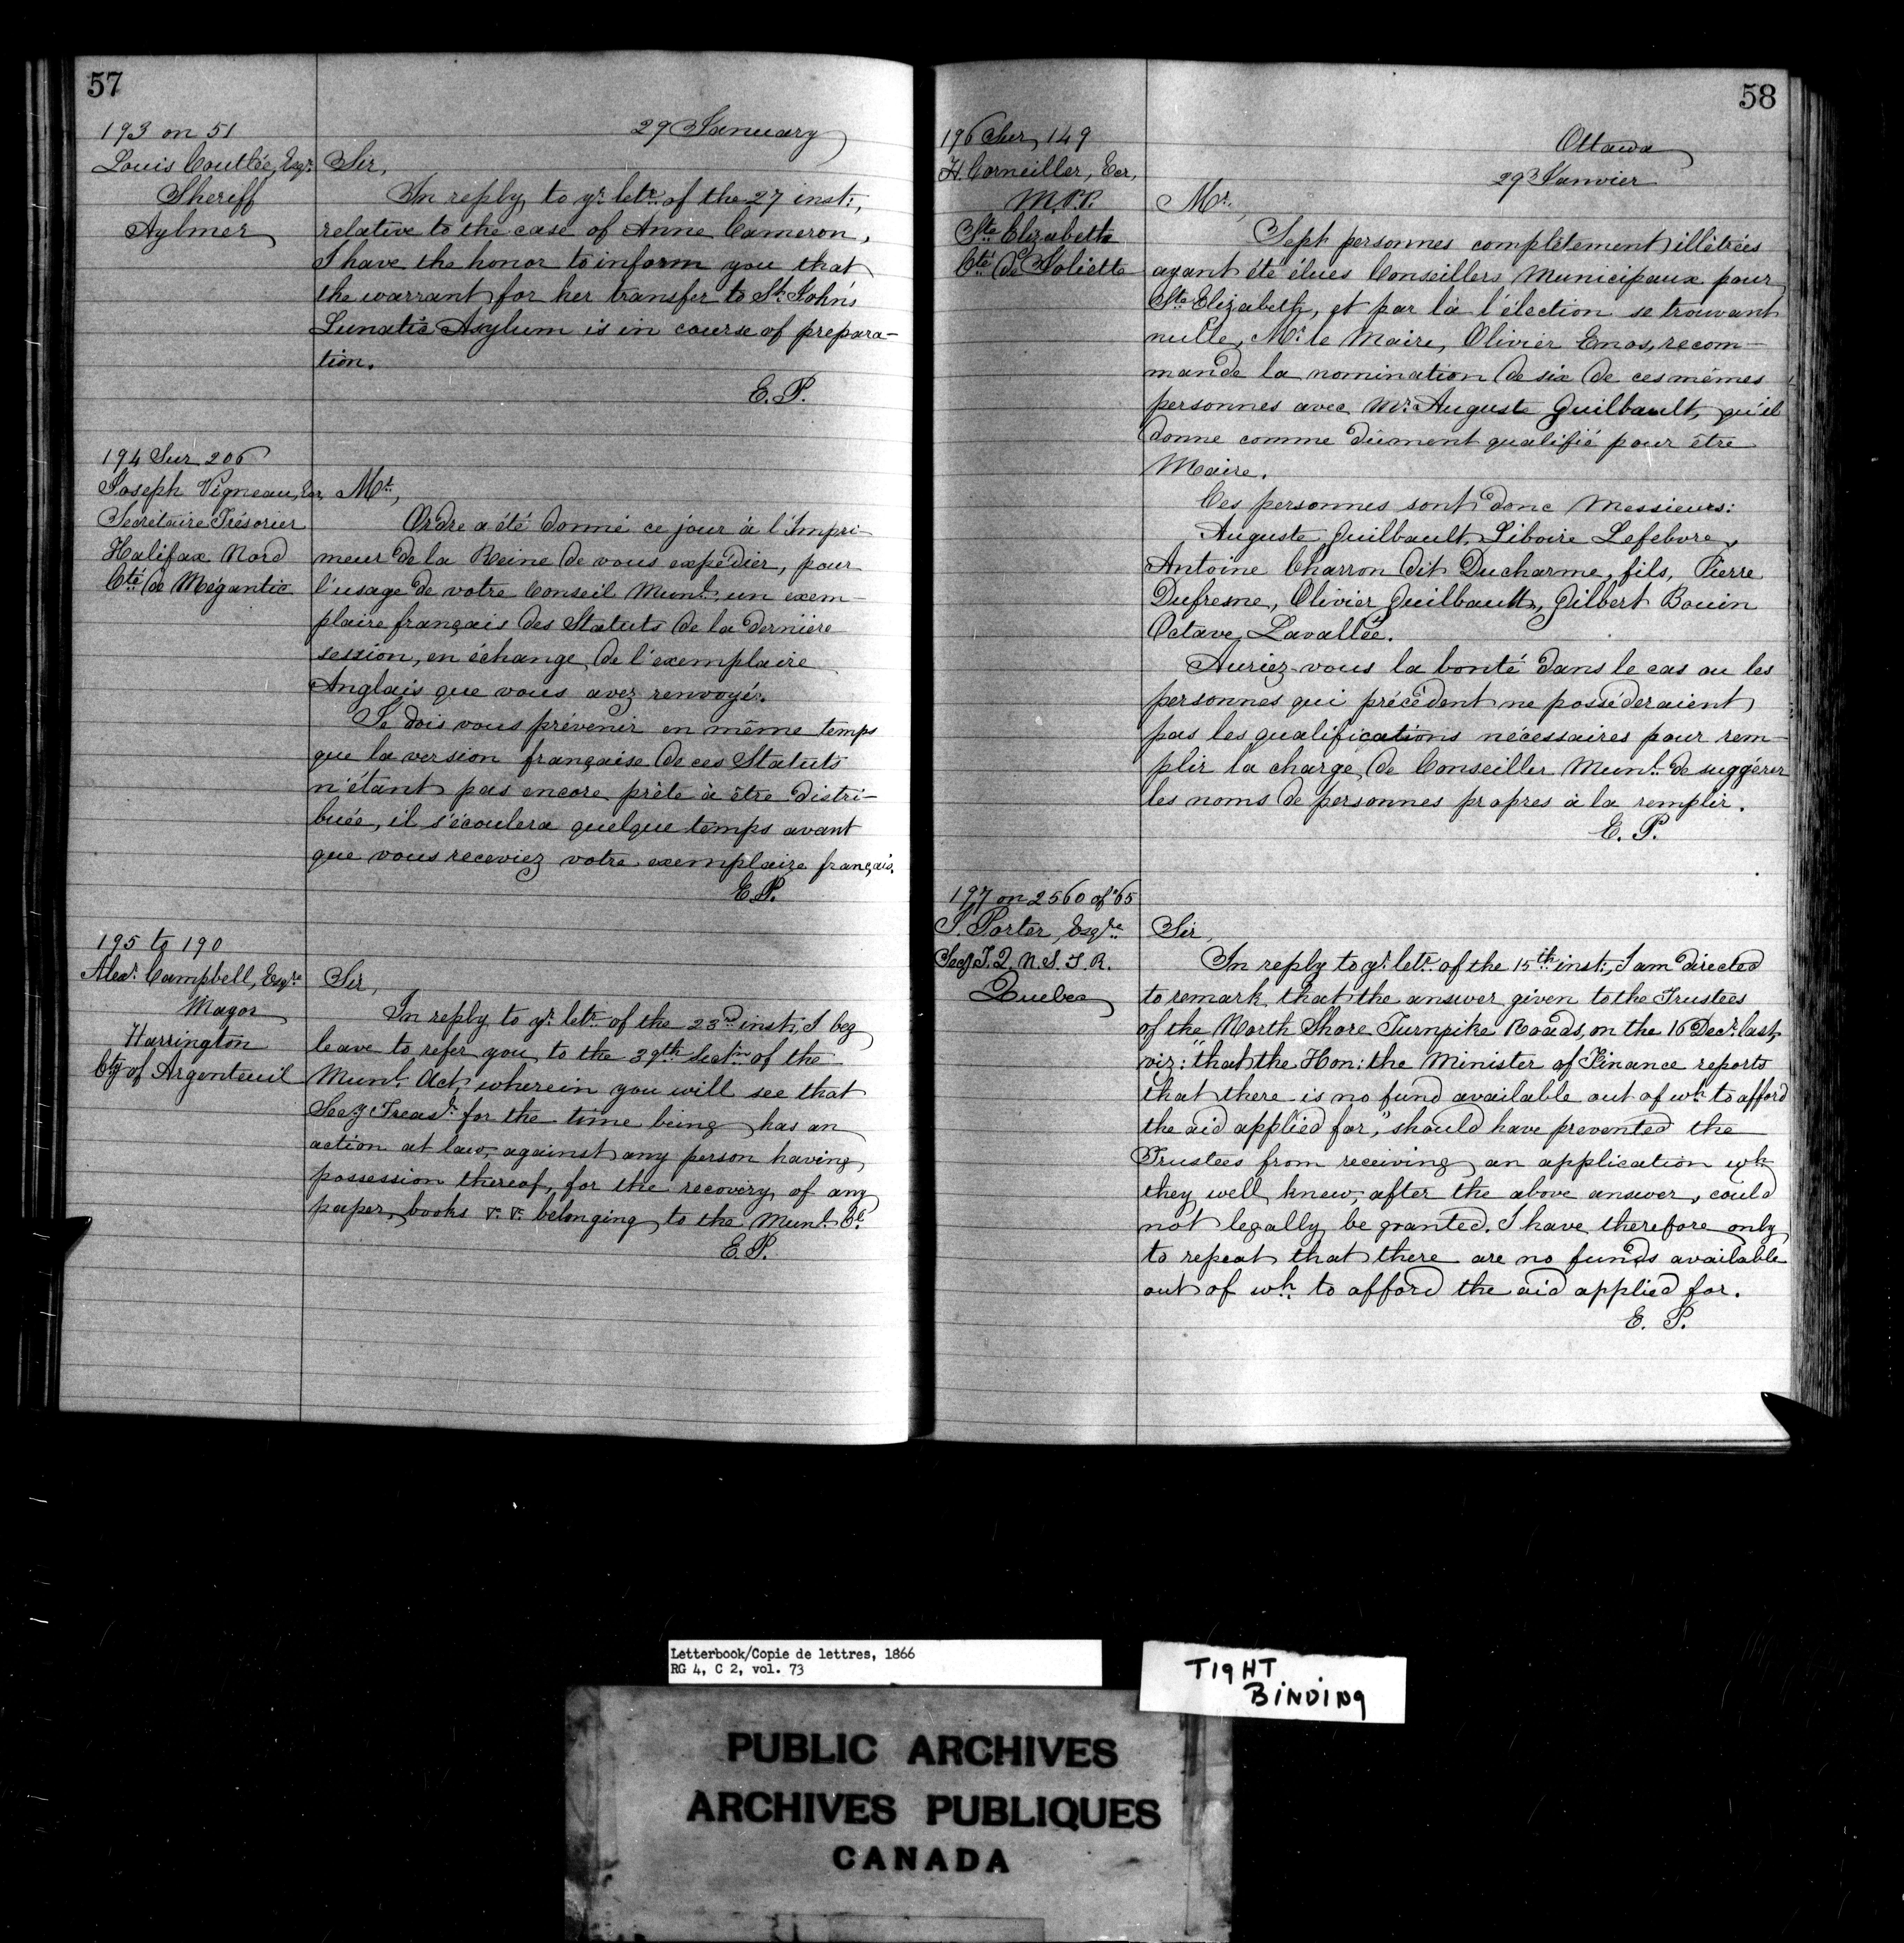 57
29 January
193 on 51
Louis Coutlée, Esqr.
Sheriff
Aylmer
Sir,
In reply to yr. letr. of the 27 inst:,
relative to the case of Anne Cameron,
I have the honor to inform you that
the warrant for her transfer to St. John's
Lunatic Asylum is in course of prepara-
tion.
E. P.
194 Sur 206
Joseph Vigneau, Ecr,
Secrétaire Trésorier
Halifax Nord
Cté de Mégantic
Mr.,
Ordre a été donné ce jour à l'Impri-
meur de la Reine de vous expédier, pour
l'usage de votre Conseil Munl. un exem-
plaire français des Statuts de la dernière
session, en échange de l'exemplaire
Anglais que vous avez renvoyé.
Je dois vous prévenir en même temps
que la version française de ces Statuts
n'étant pas encore prète à être distri-
buée, il s'écoulera quelque temps avant
que vous receviez votre exemplaire français.
E. P.
195 to 190
Alexr. Campbell, Esqre
Mayor
Harrington
Cty of Argenteuil
Sir,
In reply to yr. letr. of the 23rd inst:, I beg
leave to refer you to the 39th Sectn. of the
Munl. Act, wherein you will see that
Secy Treasr. for the time being has an
action at law, against any person having
possession thereof, for the recovery of any
paper, books &. &. belonging to the Munl. Cl.
E. P.
58
Ottawa
29 Janvier
196 Sur 149
H. Cornellier, Ecr,
M.P.P.
Ste Elizabeth
Cté de Joliette
Mr.,
Sept personnes complètement illétrées
ayant été élues Conseillers Municipaux pour
Ste Elizabeth, et par là l'élection se trouvant
nulle, Mr. le Maire, Olivier Emos, recom-
mande la nomination de six de ces mêmes
personnes avec Mr. Auguste Guilbault, qu'il
donne comme dûment qualifié pour être
Maire.
Ces personnes sont donc Messieurs:
Auguste Guilbault, Liboire Lefebvre,
Antoine Charron dit Ducharme, fils, Pierre
Dufresne, Olivier Guilbault, Gilbert Bouin
Octave Lavallée.
Auriez-vous la bonté dans le cas ou les
personnes qui précèdent ne posséderaient
pas les qualifications nécessaires pour rem-
plir la charge de Conseiller Munl. de suggérer
les noms de personnes propres à la remplir.
E. P.
197 on 2560 of '65
J. Porter, Esqre
Secy T. Q. N. S. T. R.
Quebec
Sir,
In reply to yr. letr. of the 15th inst:, I am directed
to remark that the answer given to the Trustees
of the North Shore Turnpike Roads, on the 16 Decr. last,
viz: "that the Hon: the Minister of Finance reports
that there is no fund available out of wh. to afford
the aid applied for", should have prevented the
Trustees from receiving an application wh.
they well knew, after the above answer, could
not legally be granted. I have therefore only
to repeat that there are no funds available
out of wh. to afford the aid applied for.
E. P.
Letterbook/Copie de lettres, 1866
RG 4, C 2, vol. 73
TIGHT
BINDING
PUBLIC ARCHIVES
ARCHIVES PUBLIQUES
CANADA